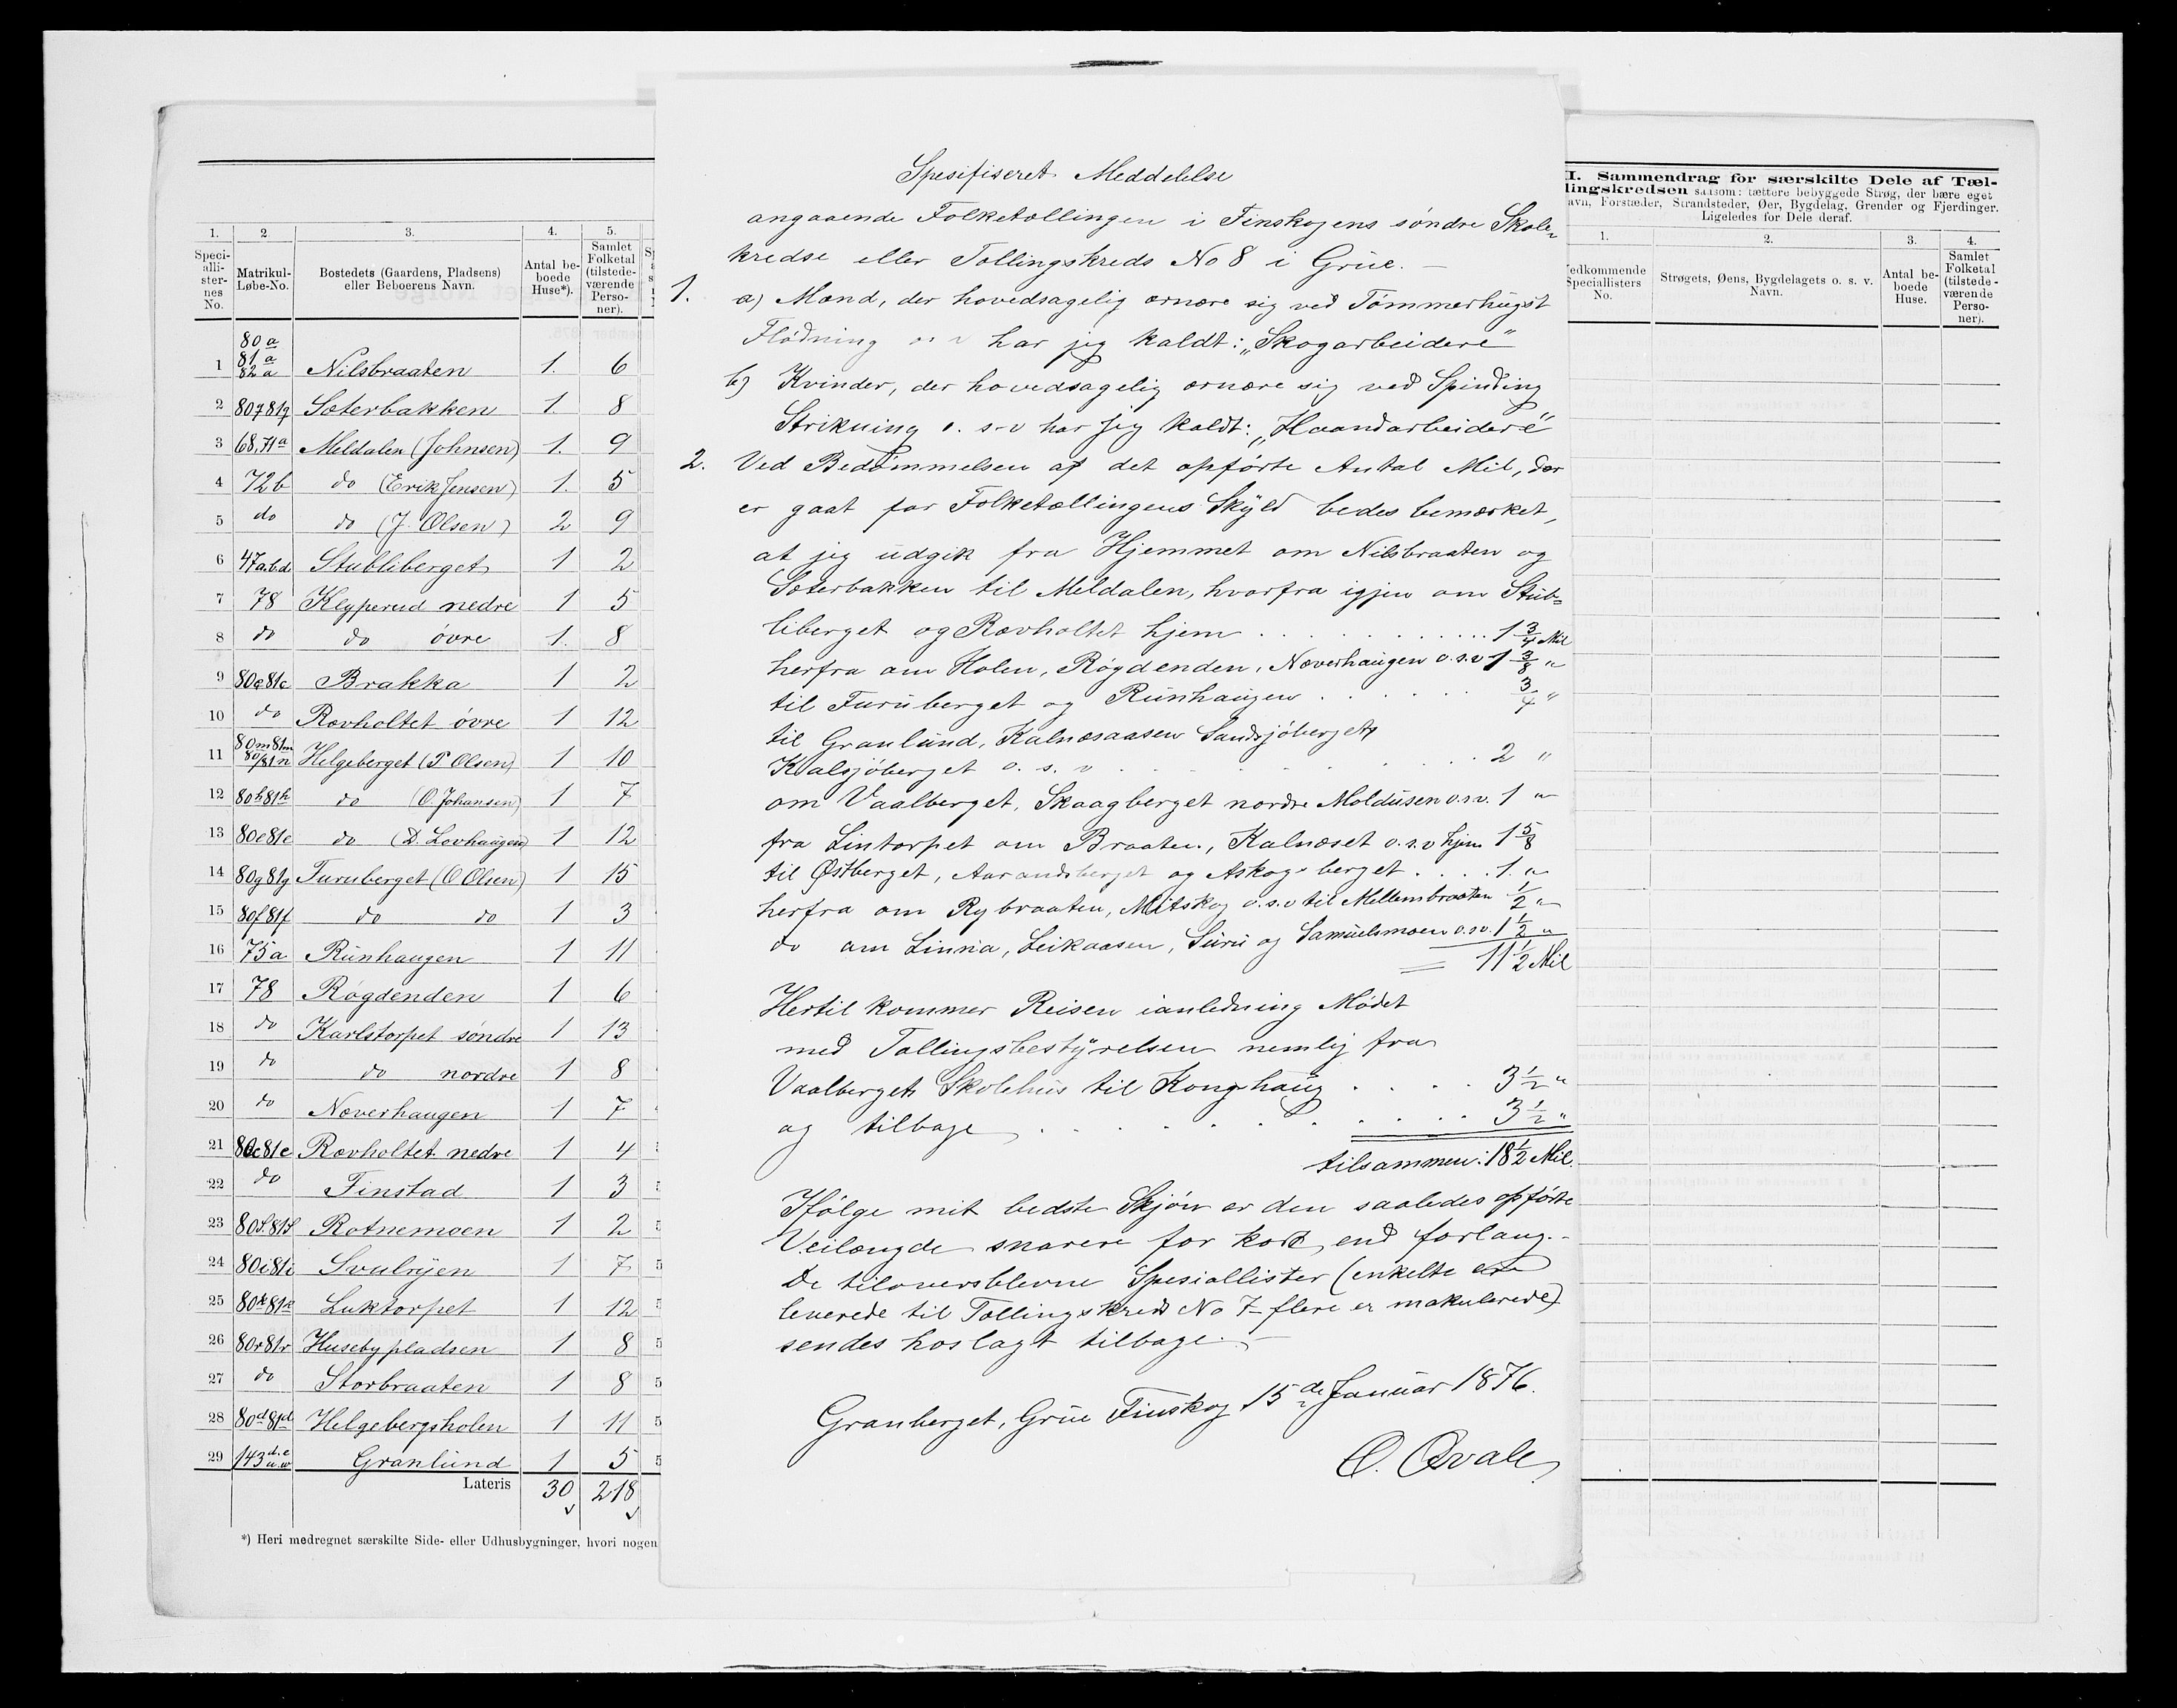 1. 2. 3. 4. 5.
Speci-
alli-
ster-
nes
No.
Matrikul-
Løbe-No.
Bostedets (Gaardens, Pladsens)
eller Beboerens Navn.
Antal be-
boede
Huse*).
Samlet
Folketal
(tilstede-
værende
Perso-
ner).
80 a
81 a
1 82 a Nilsbraaten 1. 6
2 80q 81q Sæterbakken 1. 8
3 68, 71a Meldalen (Johnsen) 1. 9
4 72b do (Erik Jensen) 1. 5
5 do do (J. Olsen) 2 9
6 47a.b.d. Stubliberget 1 2
7 78 Klyperud nedre 1 5
8 do do øvre 1. 8
9 80c 81c Brakka 1 2
10 do Rævholtet øvre 1 12
11 80m 81m Helgeberget (P Olsen) 1 10
12 80h 81h do (O. Johansen) 1 7
13 80e 81e do (D. Lovhaugen) 1 12
14 80g 81g Furuberget (O Olsen) 1 15
15 80f 81f do do 1 3
16 75a Runhaugen 1 11
17 78 Røgdenden 1 6
18 do Karlstorpet søndre 1 13
19 do do nordre 1 8
20 do Næverhaugen 1 7
21 80c 81c Rævholtet nedre 1 4
22 do Finstad 1 3
23 80s. 81s Rotnemoen 1 2
24 80i 81i Svulryen 1 7
25 80k 81k Luktorpet 1 12
26 80r 81r Husebypladsen 1 8
27 do Storbraaten 1 8
28 80d 81d Helgebergsholen 1 11
29 143 d.e u.w Granlund 1 5
Lateris 30 218
*) Heri medregnet særskilte Side- eller Udhusbygninger, hvori nogen
Spesifiseret Meddelelse
angaaende Folketællingen i Finskogens søndre Skole-
kredse eller Tællingskreds No 8 i Grue. –
1. a) Mænd, der hovedsagelig ernære sig ved Tømmerhugst
Flødning o. v har jeg kaldt: „Skogarbeidere"
b) Kvinder, der hovedsagelig ernære sig ved Spinding
Strikning o. s. v har jeg kaldt: „Haandarbeidere"
2. Ved Bedømmelsen af det opførte Antal Mil, der
er gaat for Folketællingens Skyld bedes bemærket,
at jeg udgik fra Hjemmet om Nilsbraaten og
Sæterbakken til Meldalen, hvorfra igjen om Stub-
liberget og Rævholtet hjem . . . . 1 3/4 Mil
herfra om Holen, Røgdenden, Næverhaugen o.s.v 1 3/8 "
til Furuberget og Runhaugen . . . . 3/4 "
til Granlund, Kalnæsaasen Sandsjøberget
Kvalsjøberget o. s. v . . . . 2 "
om Vaalberget, Skaagberget nordre Moldusen o.s.v. 1 "
fra Lintorpet om Braaten, Kalnæset o. s. v hjem 1 5/8
til Østberget, Aarandsberget og Askogsberget . . . . 1. "
herfra om Rybraaten, Mitskog o.s.v til Mellembraaten 1/2 "
do om Linna, Leikaasen, Suru og Samuelsmoen o.s.v. 1 1/2 "
= 11 1/2 Mil
Hertil kommer Reisen ianledning Mødet
med Tællingsbestyrelsen nemlig fra
Vaalbergets Skolehus til Kongshaug . . . . 3 1/2 "
og tilbage . . . . 3 1/2 "
tilsammen: 18 1/2 Mil.
Ifølge mit bedste Skjøn er den saaledes opførte
Veilængde snarere for kort, end forlang. –
De tiloversblevne Spesiallister (enkelte ere
leverede til Tællingskreds No 7 – flere er makulerede)
sendes hoslagt tilbage. –
Granberget, Grue Finskog 15de Januar 1876.
O. Qvale
II. Sammendrag for særskilte Dele af Tæl-
lingskredsen saasom: tættere bebyggede Strøg, der bære eget
avn, Forstæder, Strandsteder, Øer, Bygdelag, Grender og Fjerdinger.
Ligeledes for Dele deraf.
1. 2. 3. 4.
edkommende
Speciallisters
No.
Strøgets, Øens, Bygdelagets o. s. v.
Navn.
Antal be-
boede
Huse.
Samlet
Folketal
(tilstede-
værende
Perso-
ner).